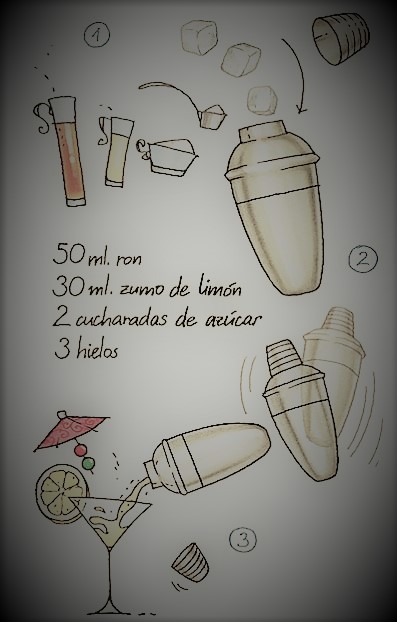 1
50 ml. ron
30 ml. zumo de limón
2 cucharadas de azúcar
3 hielos
2
3